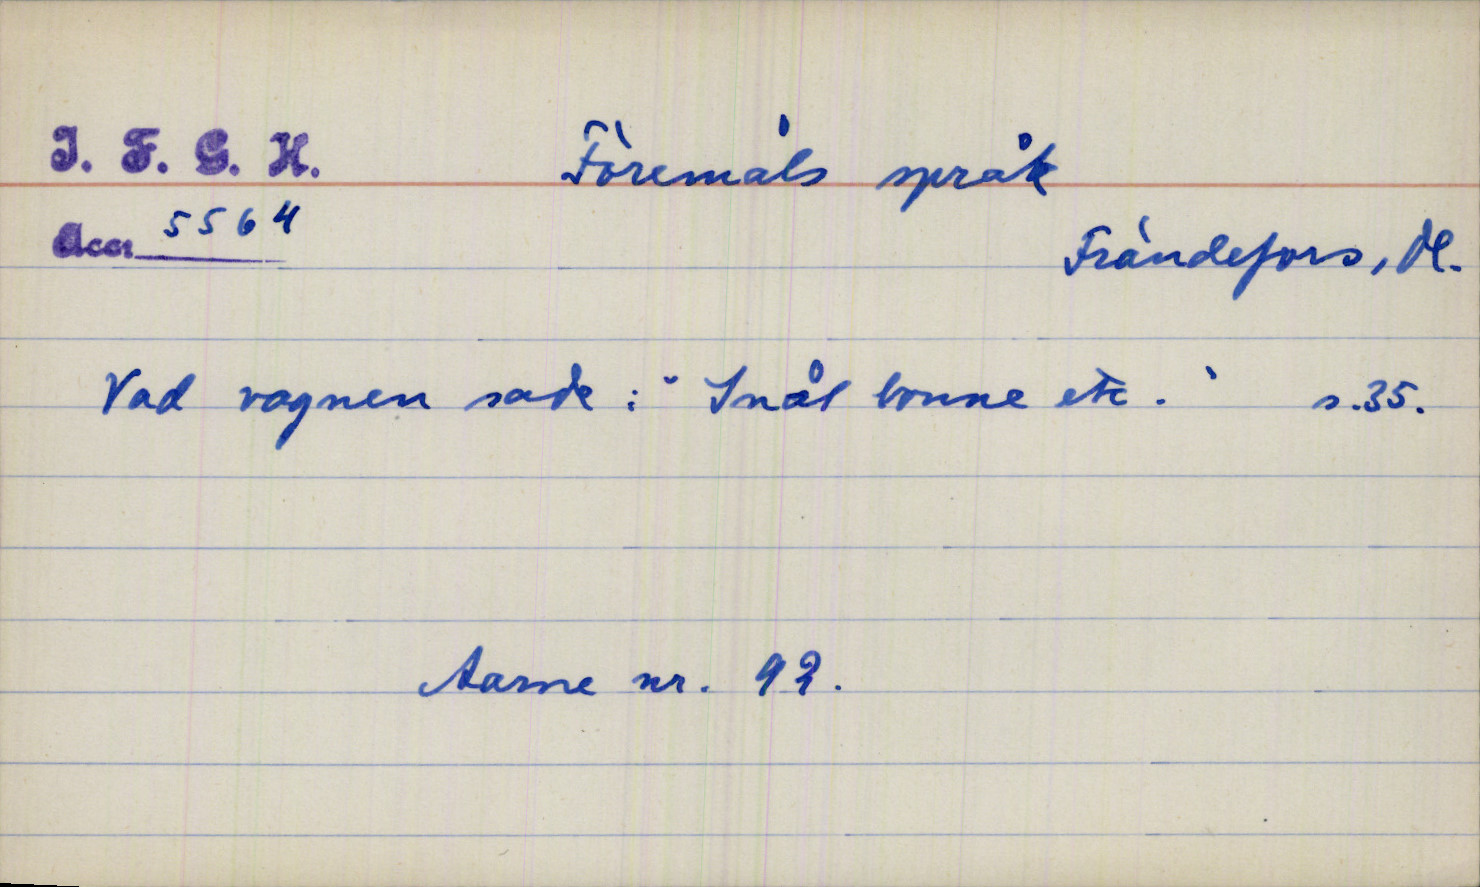 I. F. G. H. Föremåls språk
Acc. 5564
Frändefors, Dl.
Vad vagnen sade: "Snål bonne etc." s.35.
Aarne nr. 92.